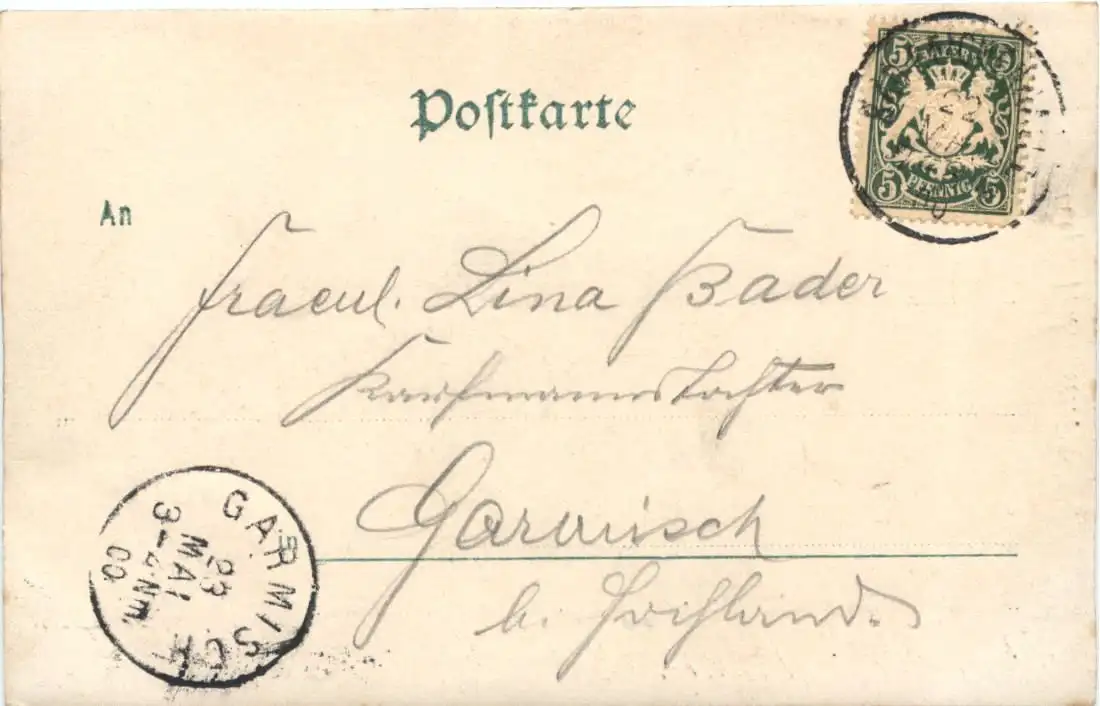 Postkarte
5 BAYERN 5
5 PFENNIG 5
22
An
Fraeul. Lina Bader
Kaufmannstochter
Garmisch
b.
GARMISCH
23
MAI
3-4 Nm.
00